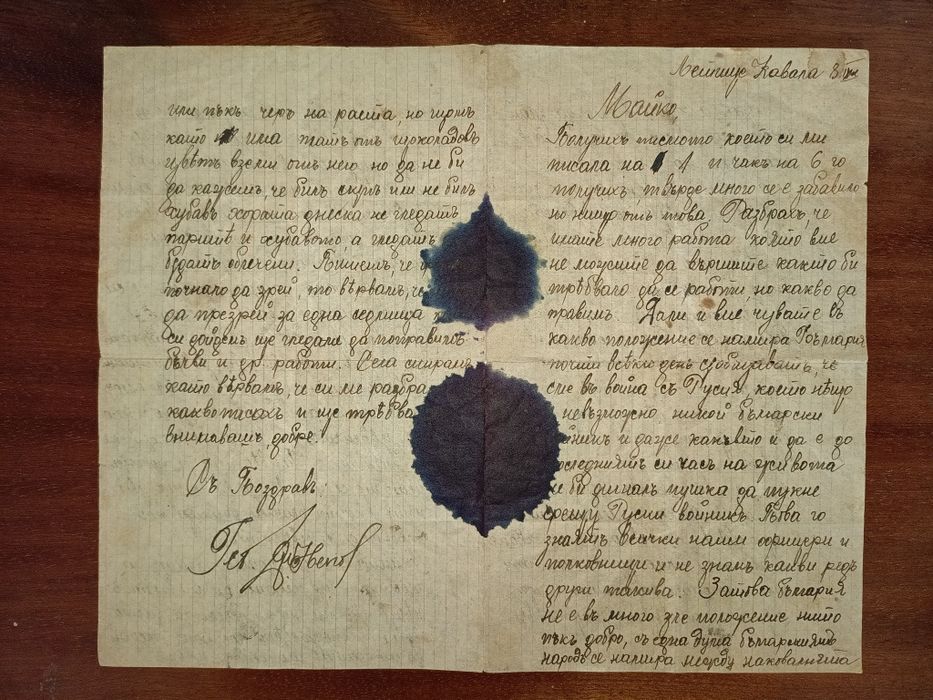 Кавала 8
Майко,
Получихъ писмото което си ми
писала на 1 и чакъ на 6 го
получихъ, твърде много се е забавило
но нищо отъ това. Разбрахъ, че
имате много работа която вие
не можите да вършите както би
трѣбвало да се работи, но какво да
правимъ. Дали и вие чувате въ
какво положение се намира България
почти всѣки день съобщаватъ, че
сме въ война съ Русия, което нѣщо
невъзможно никой български
и даже какъвто и да е до
последниятъ си часъ на живота
не би дигналъ пушка да пукне
срещу Руски войникъ. Това го
знаятъ всички наши офицери и
полковници и не знам какви редъ
други такива. Затова България
не е въ много зле положение нито
пъкъ добро, съ една дума българскиятъ
народъ се намира между наковалнята
или пъкъ черъ на раста, но щомъ
като има татъ отъ шоколадовъ
цвѣтъ вземи отъ него но да не би
да кажешъ, че билъ скупъ или не билъ
хубавъ хората днеска не гледатъ
паритѣ и хубавото, а гледатъ
бъдатъ облечени. Пишешъ, че
почнало да зрей, то вѣрвамъ, че
да презрей за една седмица
си дойдемъ ще гледаме да поправимъ
бъчви и др. работи. Сега спирамъ
като вѣрвамъ, че си ме разбра
какво писахъ и ще трѣбва
внимавашъ добре!
Съ Поздравъ: